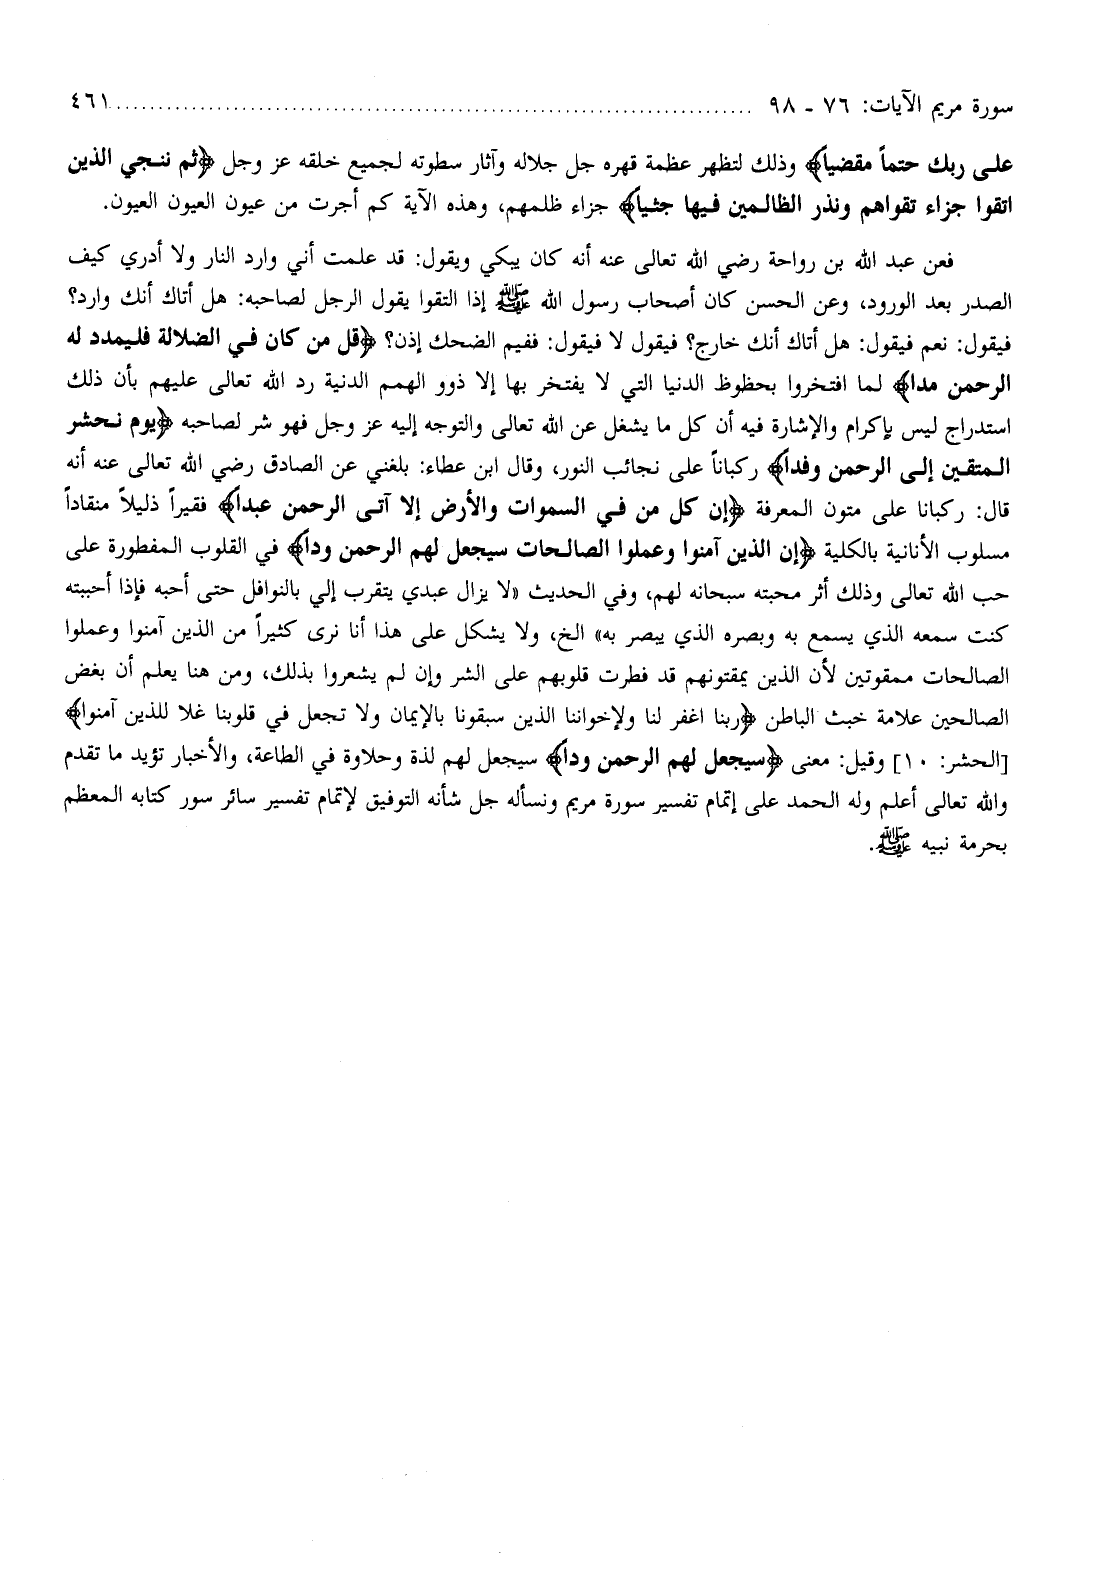 سورة مريم الآيات: ٧٦ - ٩٨ ............................................................................ ٤٦١
على ربك حتماً مقضياً﴾ وذلك لتظهر عظمة قهره جل جلاله وآثار سطوته لجميع خلقه عز وجل ﴿ثم ننجي الذين
اتقوا جزاء تقواهم ونذر الظالمين فيها جثياً﴾ جزاء ظلمهم، وهذه الآية كم أجرت من عيون العيون العيون.
فعن عبد الله بن رواحة رضي الله تعالى عنه أنه كان يبكي ويقول: قد علمت أني وارد النار ولا أدري كيف
الصدر بعد الورود، وعن الحسن كان أصحاب رسول الله ﷺ إذا التقوا يقول الرجل لصاحبه: هل أتاك أنك وارد؟
فيقول: نعم فيقول: هل أتاك أنك خارج؟ فيقول لا فيقول: ففيم الضحك إذن؟ ﴿قل من كان في الضلالة فليمدد له
الرحمن مدا﴾ لما افتخروا بحظوظ الدنيا التي لا يفتخر بها إلا ذوو الهمم الدنية رد الله تعالى عليهم بأن ذلك
استدراج ليس بإكرام والإشارة فيه أن كل ما يشغل عن الله تعالى والتوجه إليه عز وجل فهو شر لصاحبه ﴿يوم نحشر
المتقين إلى الرحمن وفداً﴾ ركباناً على نجائب النور، وقال ابن عطاء: بلغني عن الصادق رضي الله تعالى عنه أنه
قال: ركبانا على متون المعرفة ﴿إن كل من في السموات والأرض إلا آتى الرحمن عبداً﴾ فقيراً ذليلاً منقاداً
مسلوب الأنانية بالكلية ﴿إن الذين آمنوا وعملوا الصالحات سيجعل لهم الرحمن وداً﴾ في القلوب المفطورة على
حب الله تعالى وذلك أثر محبته سبحانه لهم، وفي الحديث «لا يزال عبدي يتقرب إلي بالنوافل حتى أحبه فإذا أحببته
كنت سمعه الذي يسمع به وبصره الذي يبصر به» الخ، ولا يشكل على هذا أنا نرى كثيراً من الذين آمنوا وعملوا
الصالحات ممقوتين لأن الذين يمقتونهم قد فطرت قلوبهم على الشر وإن لم يشعروا بذلك، ومن هنا يعلم أن بغض
الصالحين علامة خبث الباطن ﴿ربنا اغفر لنا ولإخواننا الذين سبقونا بالإيمان ولا تجعل في قلوبنا غلا للذين آمنوا﴾
[الحشر: ١٠] وقيل: معنى ﴿سيجعل لهم الرحمن وداً﴾ سيجعل لهم لذة وحلاوة في الطاعة، والأخبار تؤيد ما تقدم
والله تعالى أعلم وله الحمد على إتمام تفسير سورة مريم ونسأله جل شأنه التوفيق لإتمام تفسير سائر سور كتابه المعظم
بحرمة نبيه ﷺ.